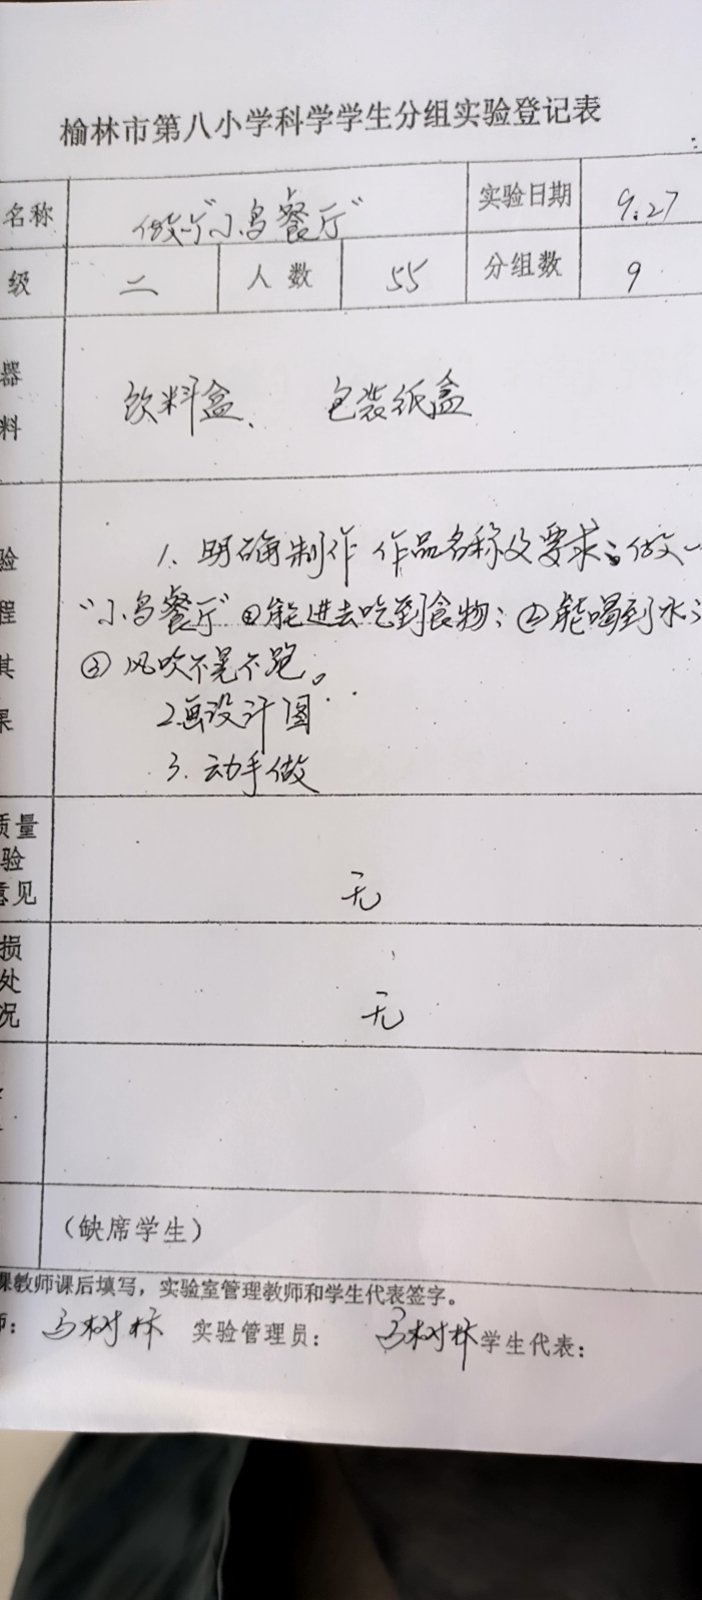 榆林市第八小学科学学生分组实验登记表
名称 做个"小鸟餐厅" 实验日期 9.27
级 二 人数 55 分组数 9
器
料
饮料盒、 包装纸盒
验
程
其
果
1. 明确制作作品名称及要求:做一
"小鸟餐厅"①能进去吃到食物;②能喝到水;
③风吹不晃不跑。
2.画设计图
3.动手做
质量
验
意见
无
损
处
况
无
(缺席学生)
课教师课后填写,实验室管理教师和学生代表签字。
师: 马树林 实验管理员: 马树林 学生代表: